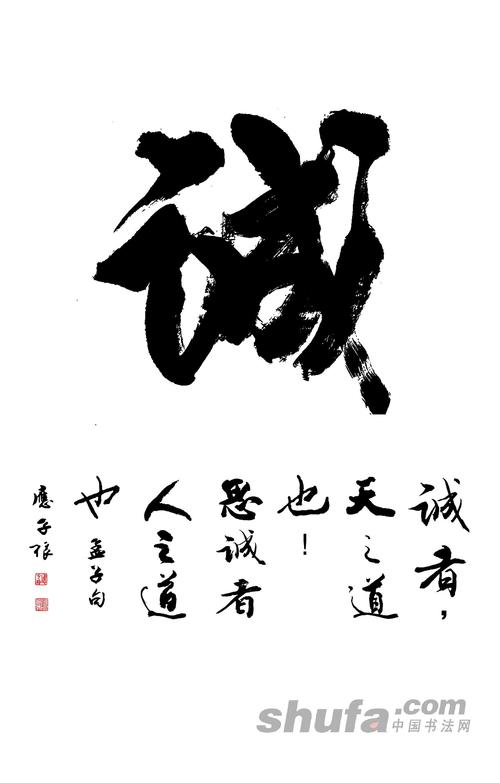 诚
诚者,
天之道
也!
思诚者
人之道
也 孟子句
應子
shufa.com
中国书法网